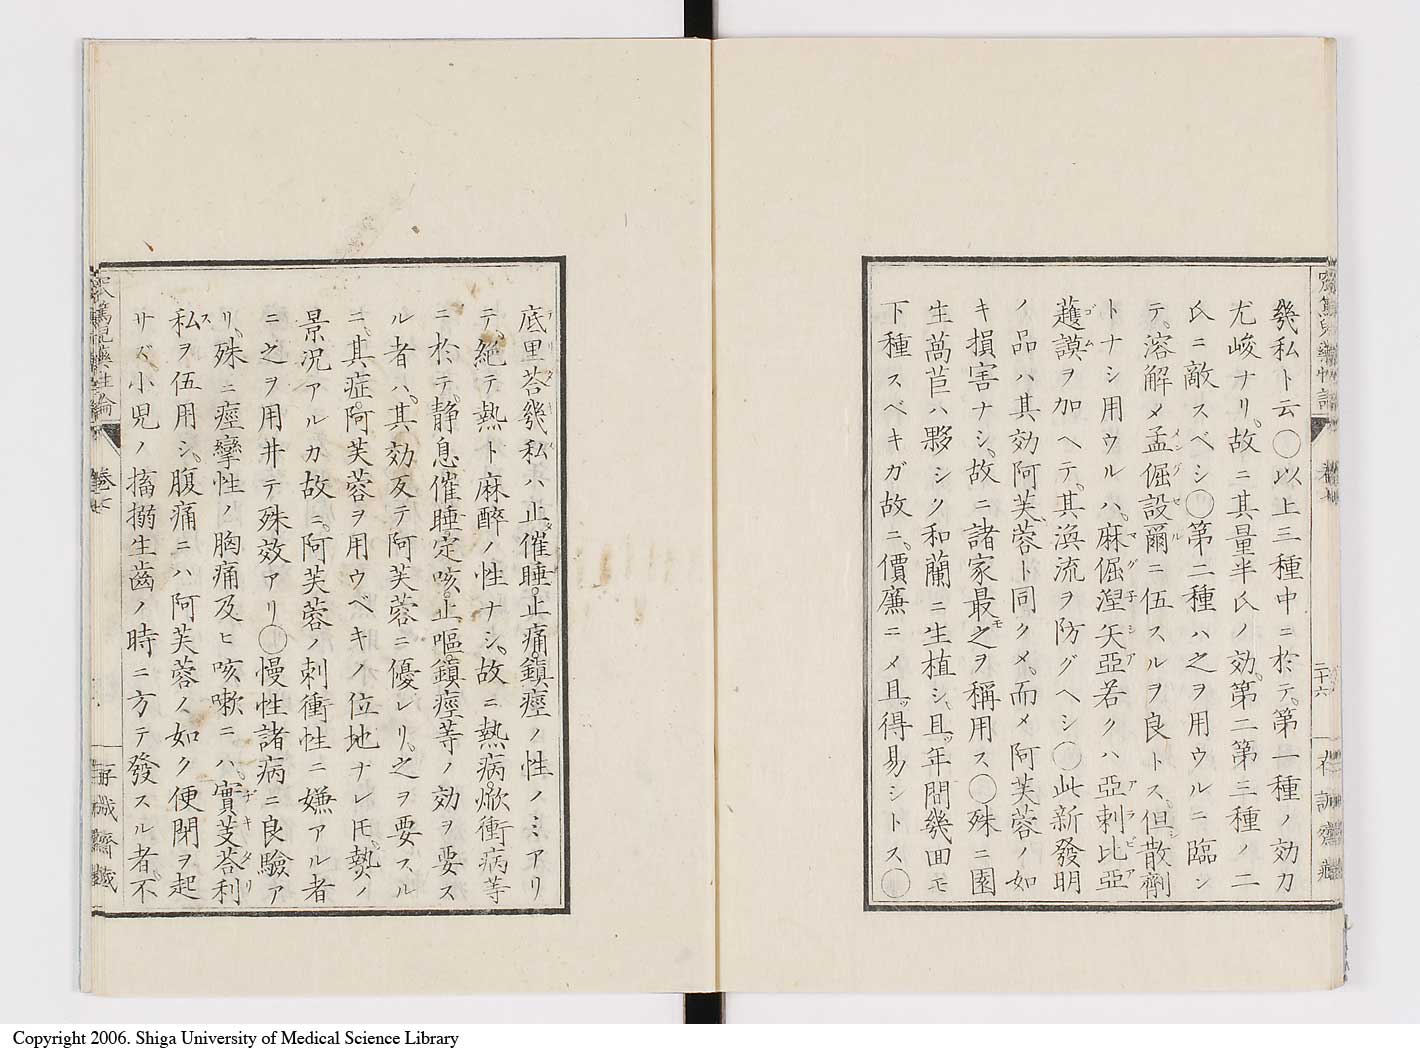 幾私ト云〇以上三種中ニ於テ、第一種ノ効力
尤峻ナリ、故ニ其量半氏ノ効、第二第三種ノ二
氏ニ敵スベシ〇第二種ハ之ヲ用ウルニ臨ン
テ、溶解メ孟倔設爾ニ伍スルヲ良トス、但散劑
トナシ用ウルハ、麻倔涅矢亞若クハ亞刺比亞
護謨ヲ加ヘテ、其滃流ヲ防グヘシ〇此新發明
ノ品ハ其効阿芙蓉ト同クメ、而メ阿芙蓉ノ如
キ損害ナシ、故ニ諸家最モ之ヲ稱用ス〇殊ニ園
生萵苣ハ夥シク和蘭ニ生植シ、且年間幾回モ
下種スベキガ故ニ、價廉ニメ且得易シトス〇
二十六
底里荅幾私ハ止催睡、止痛、鎮痙ノ性ノミアリ
テ、絶テ熱ト麻醉ノ性ナシ、故ニ熱病、焮衝病等
ニ於テ、静息、催睡、定咳、止嘔、鎮痙等ノ効ヲ要ス
ル者ハ、其効反テ阿芙蓉ニ優レリ、之ヲ要スル
ニ、其症阿芙蓉ヲ用ウベキノ位地ナレ圧、熱ノ
景況アルカ故ニ、阿芙蓉ノ刺衝性ニ嫌アル者
ニ之ヲ用井テ殊效アリ〇慢性諸病ニ良驗ア
リ、殊ニ痙攣性ノ胸痛及ヒ咳嗽ニハ、實芰荅利
私ヲ伍用シ、腹痛ニハ阿芙蓉ノ如ク便閉ヲ起
サズ小児ノ搐搦生齒ノ時ニ方テ發スル者、不
卷七
Copyright 2006. Shiga University of Medical Science Library